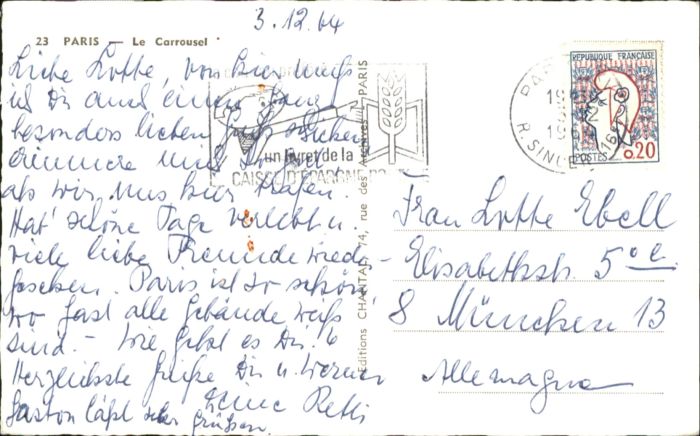 3.12.64
23 PARIS — Le Carrousel
Liebe Lotte, von hier muß
ich Dir auch einen ganz
besonders lieben Gruß schicken
erinnere mich
als wir uns hier trafen.
Hab' schöne Tage verlebt u.
viele liebe Freunde wieder-
gesehen. Paris ist so schön
wo fast alle Gebäude weiß
sind. - Wie geht es Dir?
Herzlichste Grüße Dir u. Werner
Deine Relli
Gaston läßt sehr grüßen.
Editions CHANTAL, 74, rue des Archives - PARIS
un livret de la
CAISSE D'ÉPARGNE
PARIS
R. SINGER
REPUBLIQUE FRANÇAISE
POSTES 0.20
Frau Lotte Ebell
Elisabethstr. 5
8 München 13
Allemagne